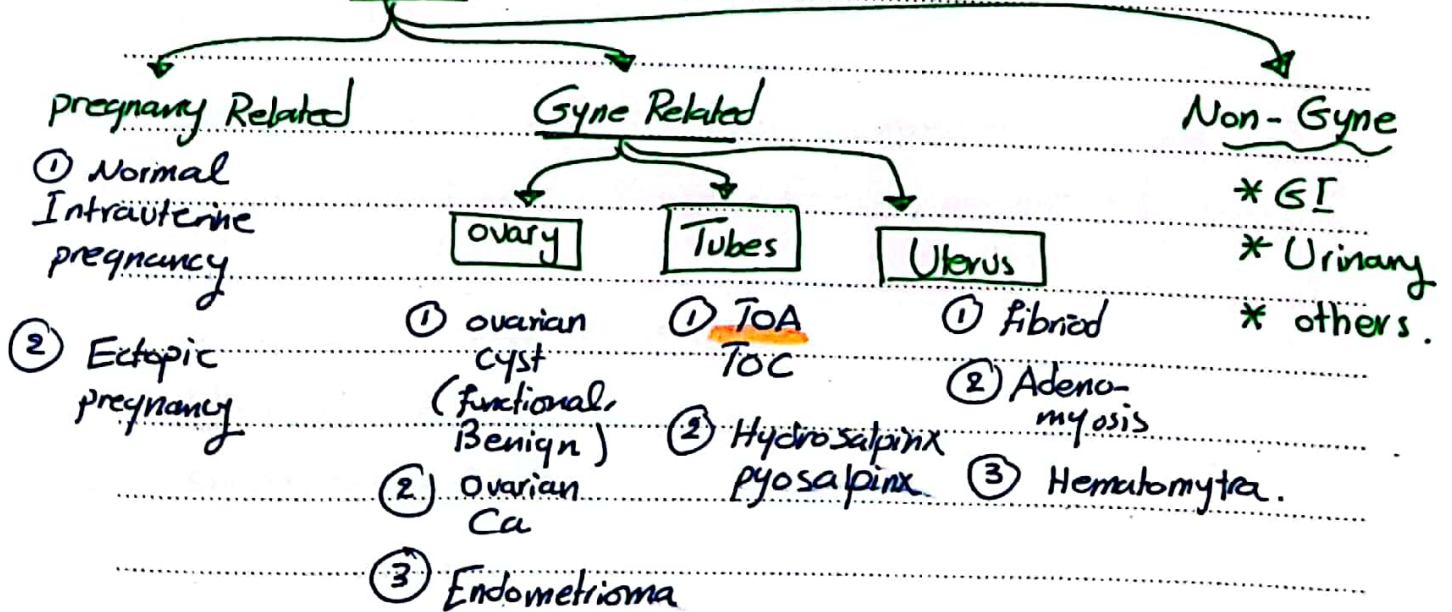 pregnany Related
① Normal
Intrauterine
pregnancy
② Ectopic
pregnancy
Gyne Related
ovary
① ovarian
cyst
(functional,
Benign)
② Ovarian
Ca
③ Endometrioma
Tubes
① TOA
TOC
② Hydrosalpinx
pyosalpinx
Uterus
① fibriod
② Adeno-
myosis
③ Hematomytra.
Non-Gyne
* GI
* Urinary
* others.